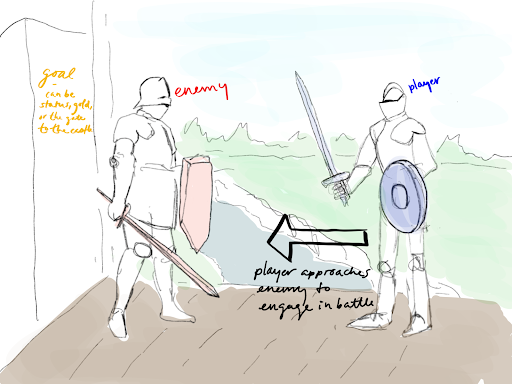 goal
-
can be
status, gold,
or the gate
to the castle
enemy
player
player approaches
enemy to
engage in battle